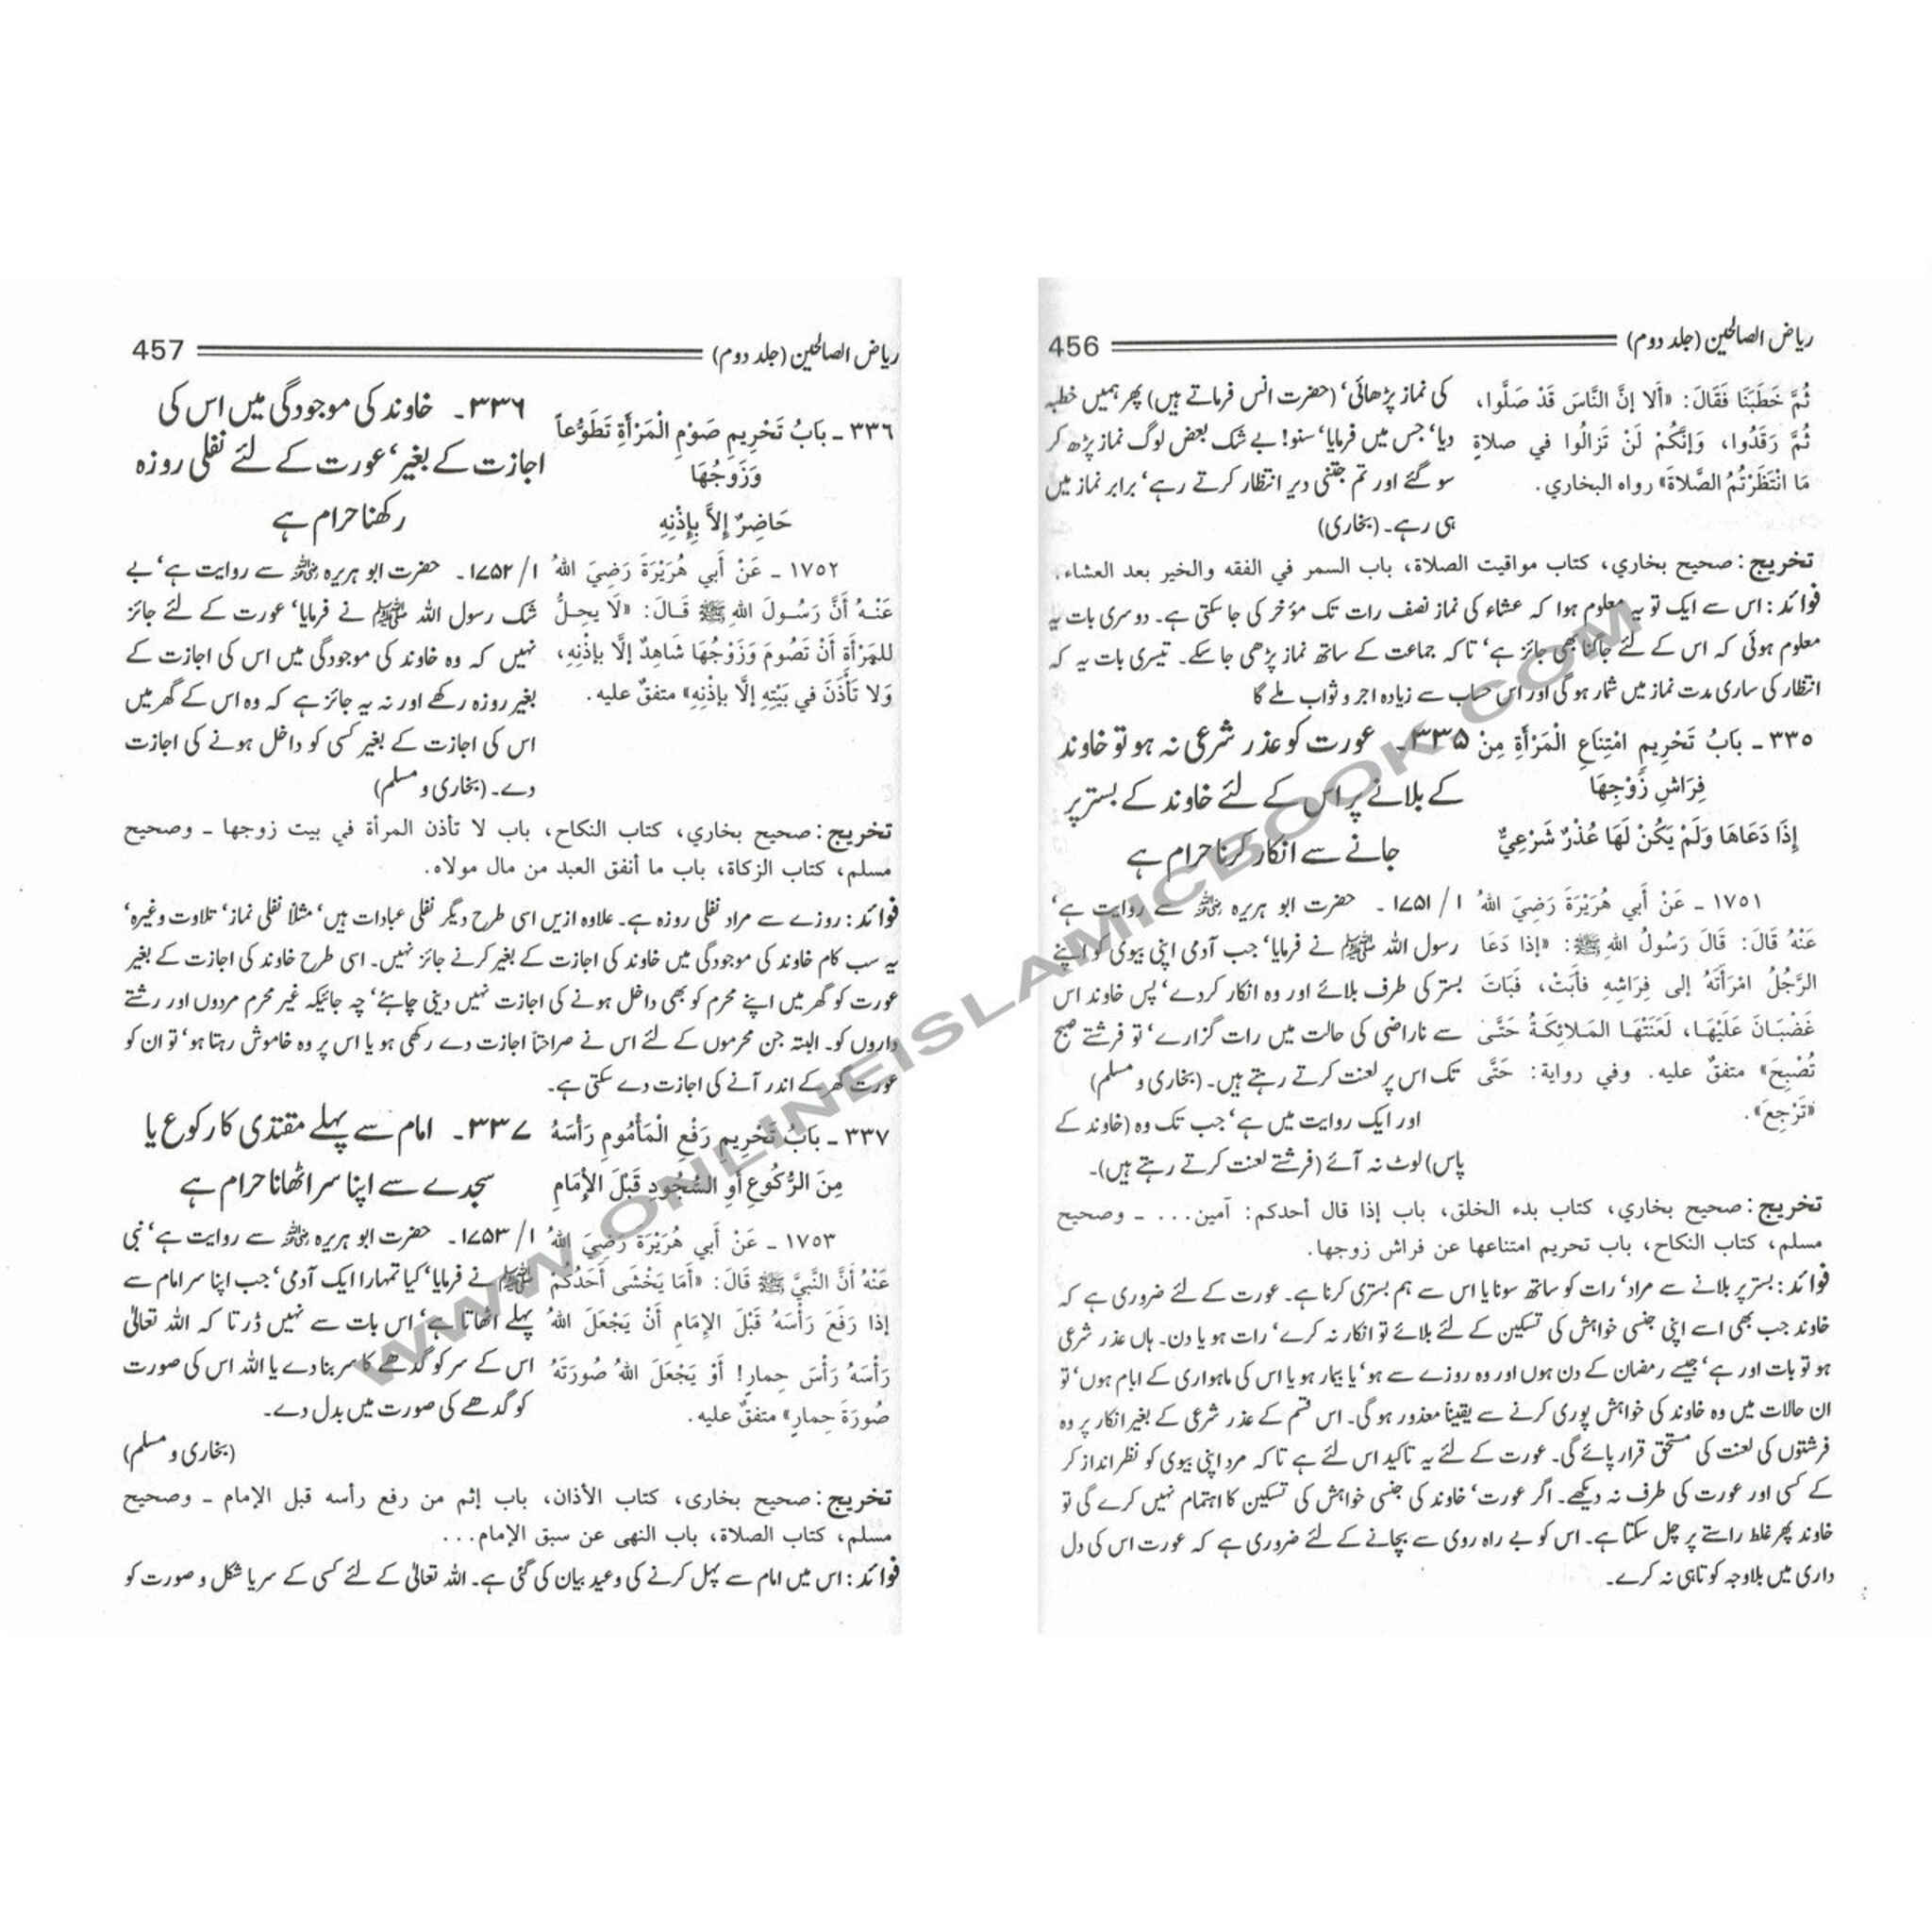 ریاض الصالحین (جلد دوم) 456
ثُمَّ خَطَبَنَا فَقَالَ: «أَلا إنَّ النَّاسَ قَدْ صَلَّوا،
ثُمَّ رَقَدُوا، وَإنَّكُمْ لَنْ تَزَالُوا في صلاةٍ
مَا انْتَظَرْتُمُ الصَّلاةَ» رواه البخاري.
کی نماز پڑھائی‘ (حضرت انس فرماتے ہیں) پھر ہمیں خطبہ
دیا‘ جس میں فرمایا‘ سنو! بے شک بعض لوگ نماز پڑھ کر
سو گئے اور تم جتنی دیر انتظار کرتے رہے‘ برابر نماز میں
ہی رہے۔ (بخاری)
تخريج: صحيح بخاري، كتاب مواقيت الصلاة، باب السمر في الفقه والخير بعد العشاء.
فوائد: اس سے ایک تو یہ معلوم ہوا کہ عشاء کی نماز نصف رات تک مؤخر کی جا سکتی ہے۔ دوسری بات یہ
معلوم ہوئی کہ اس کے لئے جاگنا بھی جائز ہے‘ تاکہ جماعت کے ساتھ نماز پڑھی جا سکے۔ تیسری بات یہ کہ
انتظار کی ساری مدت نماز میں شمار ہو گی اور اس حساب سے زیادہ اجر و ثواب ملے گا
٣٣٥ ـ بَابُ تَحْرِيمِ امْتِنَاعِ الْمَرْأَةِ مِنْ
فِرَاشِ زَوْجِهَا
إِذَا دَعَاهَا وَلَمْ يَكُنْ لَهَا عُذْرٌ شَرْعِيٌّ
۳۳۵۔ عورت کو عذر شرعی نہ ہو تو خاوند
کے بلانے پر اس کے لئے خاوند کے بستر پر
جانے سے انکار کرنا حرام ہے
١٧٥١ ـ عَنْ أَبي هُرَيْرَةَ رَضِيَ اللهُ
عَنْهُ قَالَ: قَالَ رَسُولُ اللهِ ﷺ: «إذا دَعَا
الرَّجُلُ امْرَأَتَهُ إلى فِرَاشِهِ فأَبَتْ، فَبَاتَ
غَضْبَانَ عَلَيْهَا، لَعَنَتْهَا المَلائِكَةُ حَتَّى
تُصْبِحَ» متفقٌ عليه. وفي رواية: حَتَّى
«تَرْجِعَ».
۱/ ۱۷۵۱ ۔ حضرت ابو ہریرہ رضی اللہ عنہ سے روایت ہے‘
رسول اللہ ﷺ نے فرمایا‘ جب آدمی اپنی بیوی کو اپنے
بستر کی طرف بلائے اور وہ انکار کر دے‘ پس خاوند اس
سے ناراضی کی حالت میں رات گزارے‘ تو فرشتے صبح
تک اس پر لعنت کرتے رہتے ہیں۔ (بخاری و مسلم)
اور ایک روایت میں ہے‘ جب تک وہ (خاوند کے
پاس) لوٹ نہ آئے (فرشتے لعنت کرتے رہتے ہیں)۔
تخريج: صحيح بخاري، كتاب بدء الخلق، باب إذا قال أحدكم: آمين... ـ وصحيح
مسلم، كتاب النكاح، باب تحريم امتناعها عن فراش زوجها.
فوائد: بستر پر بلانے سے مراد‘ رات کو ساتھ سونا یا اس سے ہم بستری کرنا ہے۔ عورت کے لئے ضروری ہے کہ
خاوند جب بھی اسے اپنی جنسی خواہش کی تسکین کے لئے بلائے تو انکار نہ کرے‘ رات ہو یا دن۔ ہاں عذر شرعی
ہو تو بات اور ہے‘ جیسے رمضان کے دن ہوں اور وہ روزے سے ہو‘ یا بیمار ہو یا اس کی ماہواری کے ایام ہوں‘ تو
ان حالات میں وہ خاوند کی خواہش پوری کرنے سے یقیناً معذور ہو گی۔ اس قسم کے عذر شرعی کے بغیر انکار پر وہ
فرشتوں کی لعنت کی مستحق قرار پائے گی۔ عورت کے لئے یہ تاکید اس لئے ہے تاکہ مرد اپنی بیوی کو نظر انداز کر
کے کسی اور عورت کی طرف نہ دیکھے۔ اگر عورت‘ خاوند کی جنسی خواہش کی تسکین کا اہتمام نہیں کرے گی تو
خاوند پھر غلط راستے پر چل سکتا ہے۔ اس کو بے راہ روی سے بچانے کے لئے ضروری ہے کہ عورت اس کی دل
داری میں بلاوجہ کوتاہی نہ کرے۔
ریاض الصالحین (جلد دوم) 457
٣٣٦ ـ بَابُ تَحْرِيمِ صَوْمِ الْمَرْأَةِ تَطَوُّعاً
وَزَوْجُهَا
حَاضِرٌ إِلاَّ بِإِذْنِهِ
۳۳۶۔ خاوند کی موجودگی میں اس کی
اجازت کے بغیر‘ عورت کے لئے نفلی روزہ
رکھنا حرام ہے
١٧٥٢ ـ عَنْ أَبي هُرَيْرَةَ رَضِيَ اللهُ
عَنْهُ أَنَّ رَسُولَ اللهِ ﷺ قَالَ: «لَا يحِلُّ
للمَرْأَةِ أَنْ تَصُومَ وَزَوْجُهَا شَاهِدٌ إلَّا بإذْنِهِ،
وَلا تَأْذَنَ في بَيْتِهِ إلَّا بإذْنِهِ» متفقٌ عليه.
۱/ ۱۷۵۲۔ حضرت ابو ہریرہ رضی اللہ عنہ سے روایت ہے‘ بے
شک رسول اللہ ﷺ نے فرمایا‘ عورت کے لئے جائز
نہیں کہ وہ خاوند کی موجودگی میں اس کی اجازت کے
بغیر روزہ رکھے اور نہ یہ جائز ہے کہ وہ اس کے گھر میں
اس کی اجازت کے بغیر کسی کو داخل ہونے کی اجازت
دے۔ (بخاری و مسلم)
تخريج: صحيح بخاري، كتاب النكاح، باب لا تأذن المرأة في بيت زوجها ـ وصحيح
مسلم، كتاب الزكاة، باب ما أنفق العبد من مال مولاه.
فوائد: روزے سے مراد نفلی روزہ ہے۔ علاوہ ازیں اسی طرح دیگر نفلی عبادات ہیں‘ مثلاً نفلی نماز‘ تلاوت وغیرہ‘
یہ سب کام خاوند کی موجودگی میں خاوند کی اجازت کے بغیر کرنے جائز نہیں۔ اسی طرح خاوند کی اجازت کے بغیر
عورت کو گھر میں اپنے محرم کو بھی داخل ہونے کی اجازت نہیں دینی چاہئے‘ چہ جائیکہ غیر محرم مردوں اور رشتے
داروں کو۔ البتہ جن محرموں کے لئے اس نے صراحتاً اجازت دے رکھی ہو یا اس پر وہ خاموش رہتا ہو‘ تو ان کو
عورت گھر کے اندر آنے کی اجازت دے سکتی ہے۔
٣٣٧ ـ بَابُ تَحْرِيمِ رَفْعِ الْمَأْمُومِ رَأْسَهُ
مِنَ الرُّكُوعِ أَوِ السُّجُودِ قَبْلَ الإِمَامِ
۳۳۷۔ امام سے پہلے مقتدی کا رکوع یا
سجدے سے اپنا سر اٹھانا حرام ہے
١٧٥٣ ـ عَنْ أَبي هُرَيْرَةَ رَضِيَ اللهُ
عَنْهُ أَنَّ النَّبيَّ ﷺ قَالَ: «أَمَا يَخْشَى أَحَدُكُمْ
إذا رَفَعَ رَأْسَهُ قَبْلَ الإمَامِ أَنْ يَجْعَلَ اللهُ
رَأْسَهُ رَأْسَ حِمارٍ! أَوْ يَجْعَلَ اللهُ صُورَتَهُ
صُورَةَ حِمارٍ» متفقٌ عليه.
۱/ ۱۷۵۳۔ حضرت ابو ہریرہ رضی اللہ عنہ سے روایت ہے‘ نبی
ﷺ نے فرمایا‘ کیا تمہارا ایک آدمی‘ جب اپنا سر امام سے
پہلے اٹھاتا ہے‘ اس بات سے نہیں ڈرتا کہ اللہ تعالیٰ
اس کے سر کو گدھے کا سر بنا دے یا اللہ اس کی صورت
کو گدھے کی صورت میں بدل دے۔
(بخاری و مسلم)
تخريج: صحيح بخاری، كتاب الأذان، باب إثم من رفع رأسه قبل الإمام ـ وصحيح
مسلم، كتاب الصلاة، باب النهى عن سبق الإمام...
فوائد: اس میں امام سے پہل کرنے کی وعید بیان کی گئی ہے۔ اللہ تعالیٰ کے لئے کسی کے سر یا شکل و صورت کو
WWW.ONLINEISLAMICBOOK.COM